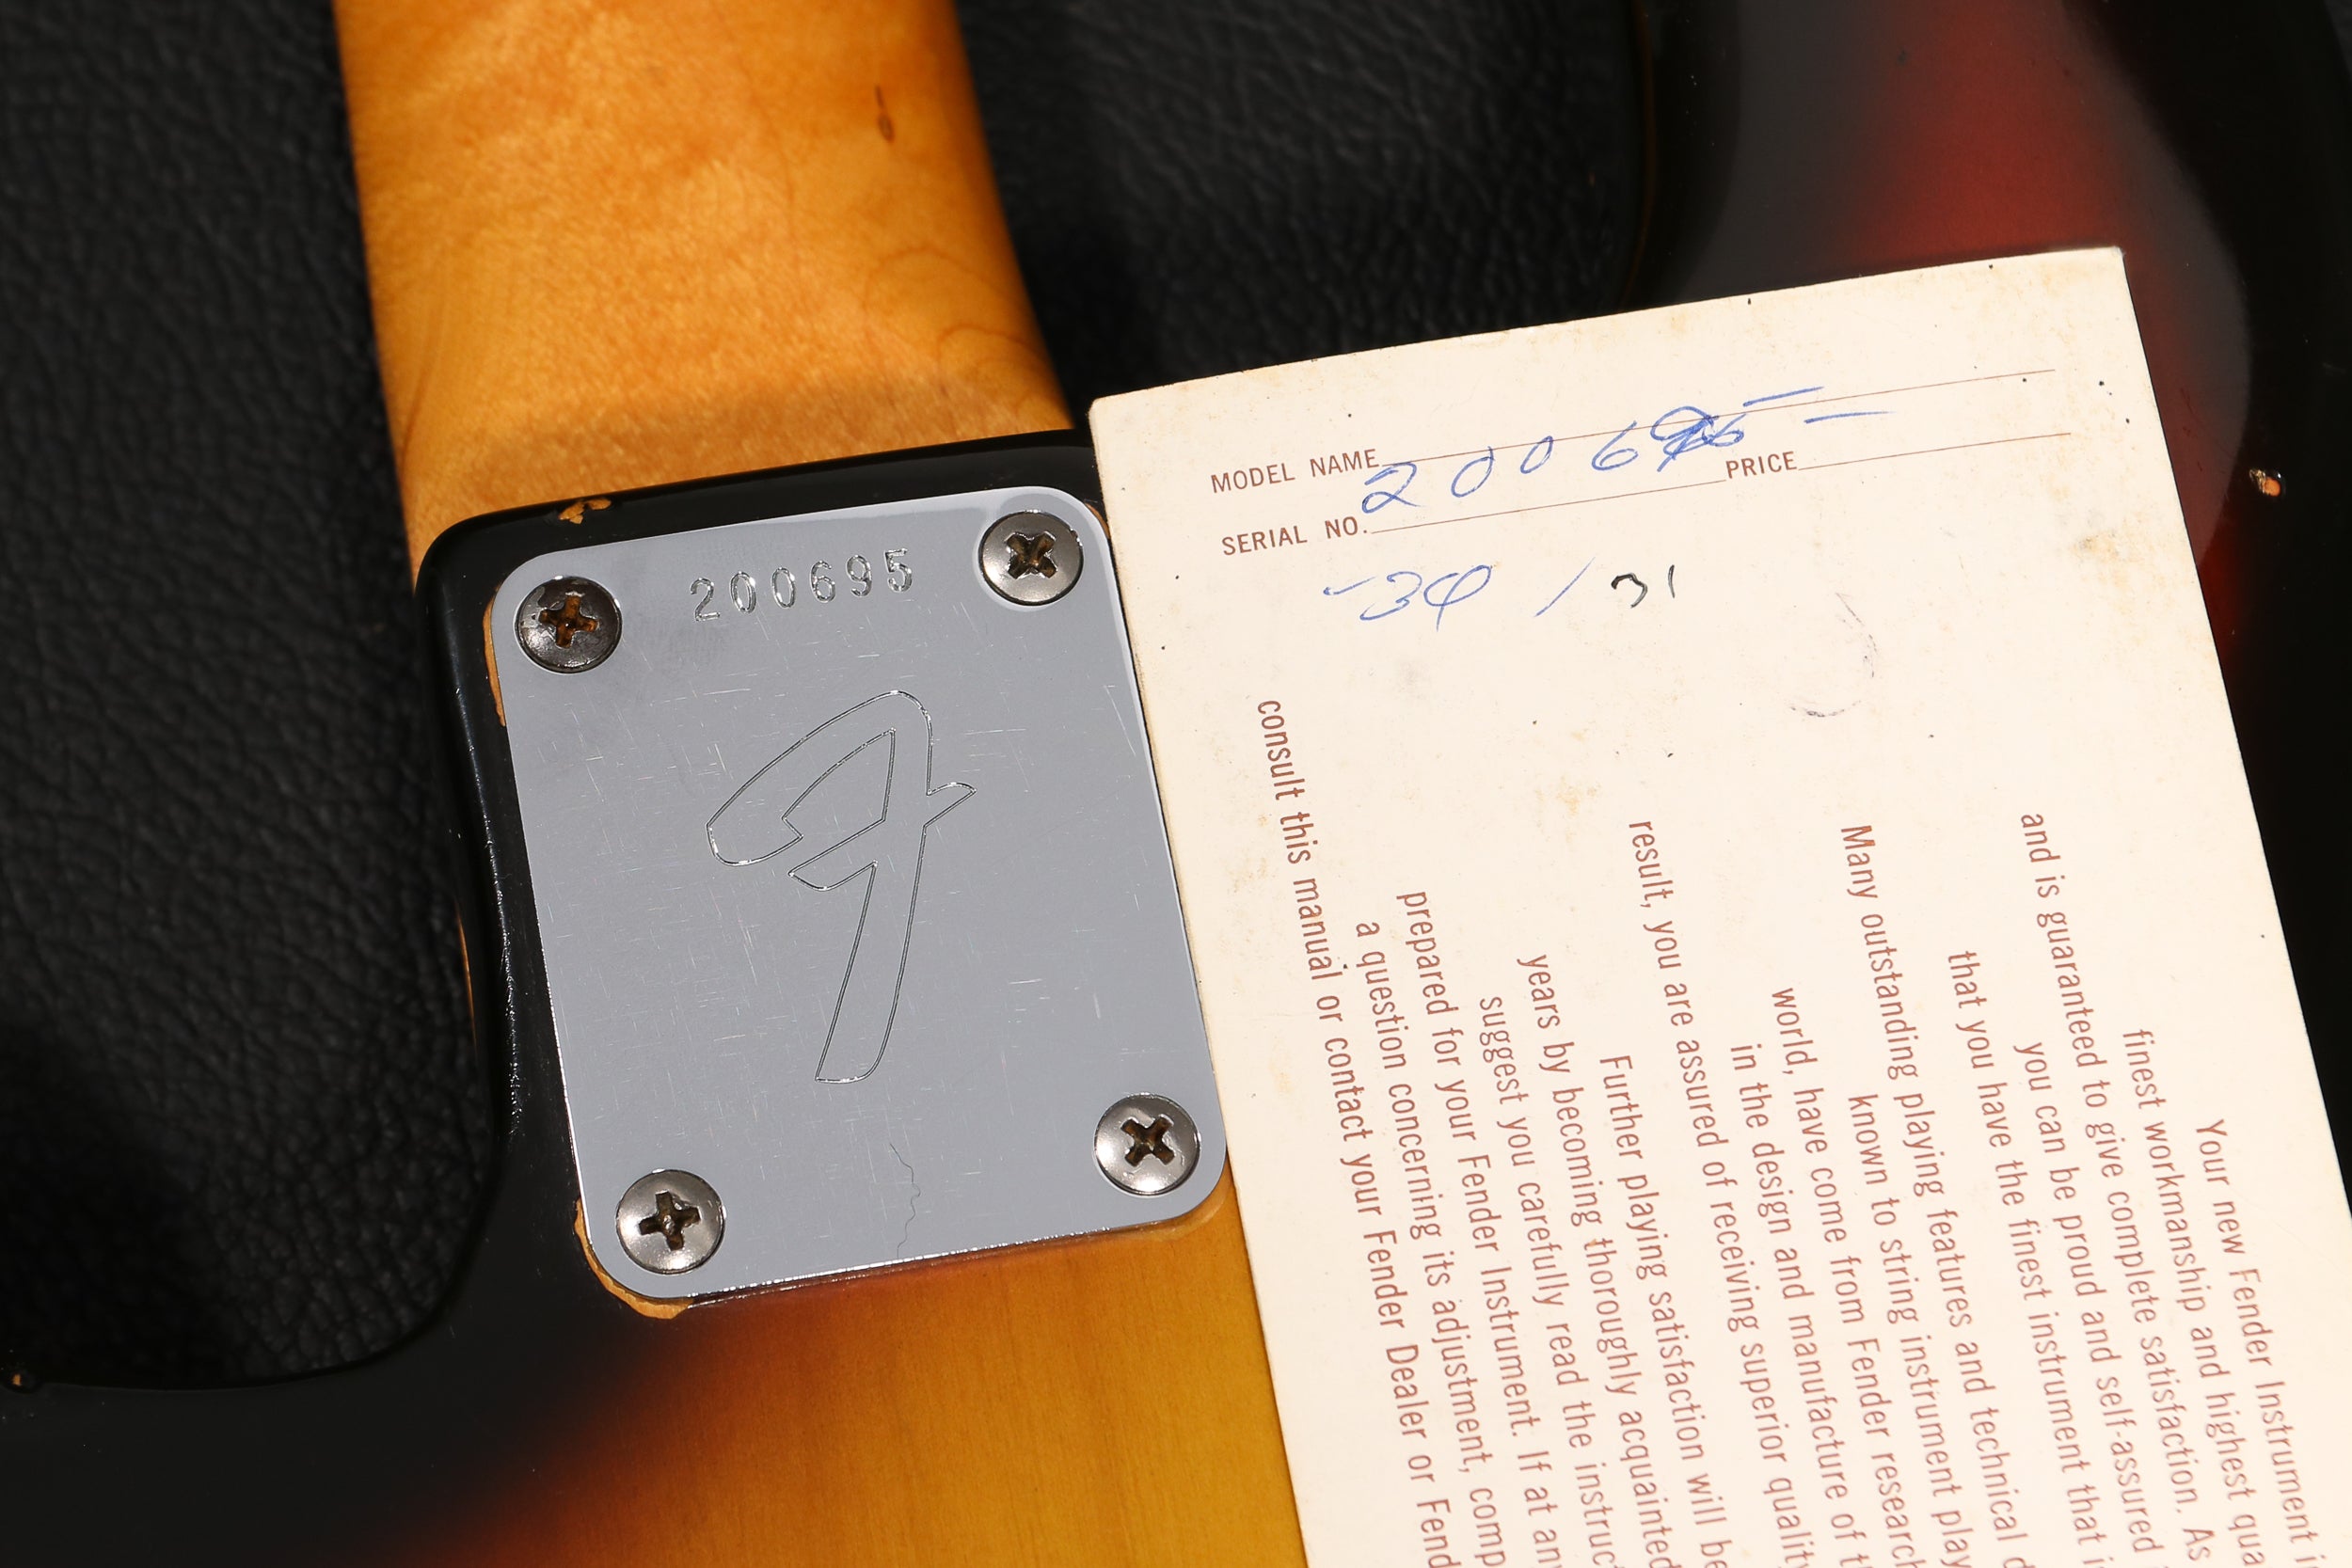 200695
F
MODEL NAME
SERIAL NO. PRICE
31
Your new Fender Instrument
finest workmanship and highest
and is guaranteed to give complete satisfaction. As
you can be proud and self-assured
that you have the finest instrument that
Many outstanding playing features and technical
known to string instrument
world, have come from Fender research
in the design and manufacture of
result, you are assured of receiving superior quality
Further playing satisfaction will be
years by becoming thoroughly acquainted
suggest you carefully read the
prepared for your Fender Instrument. If at any
a question concerning its adjustment,
consult this manual or contact your Fender Dealer or